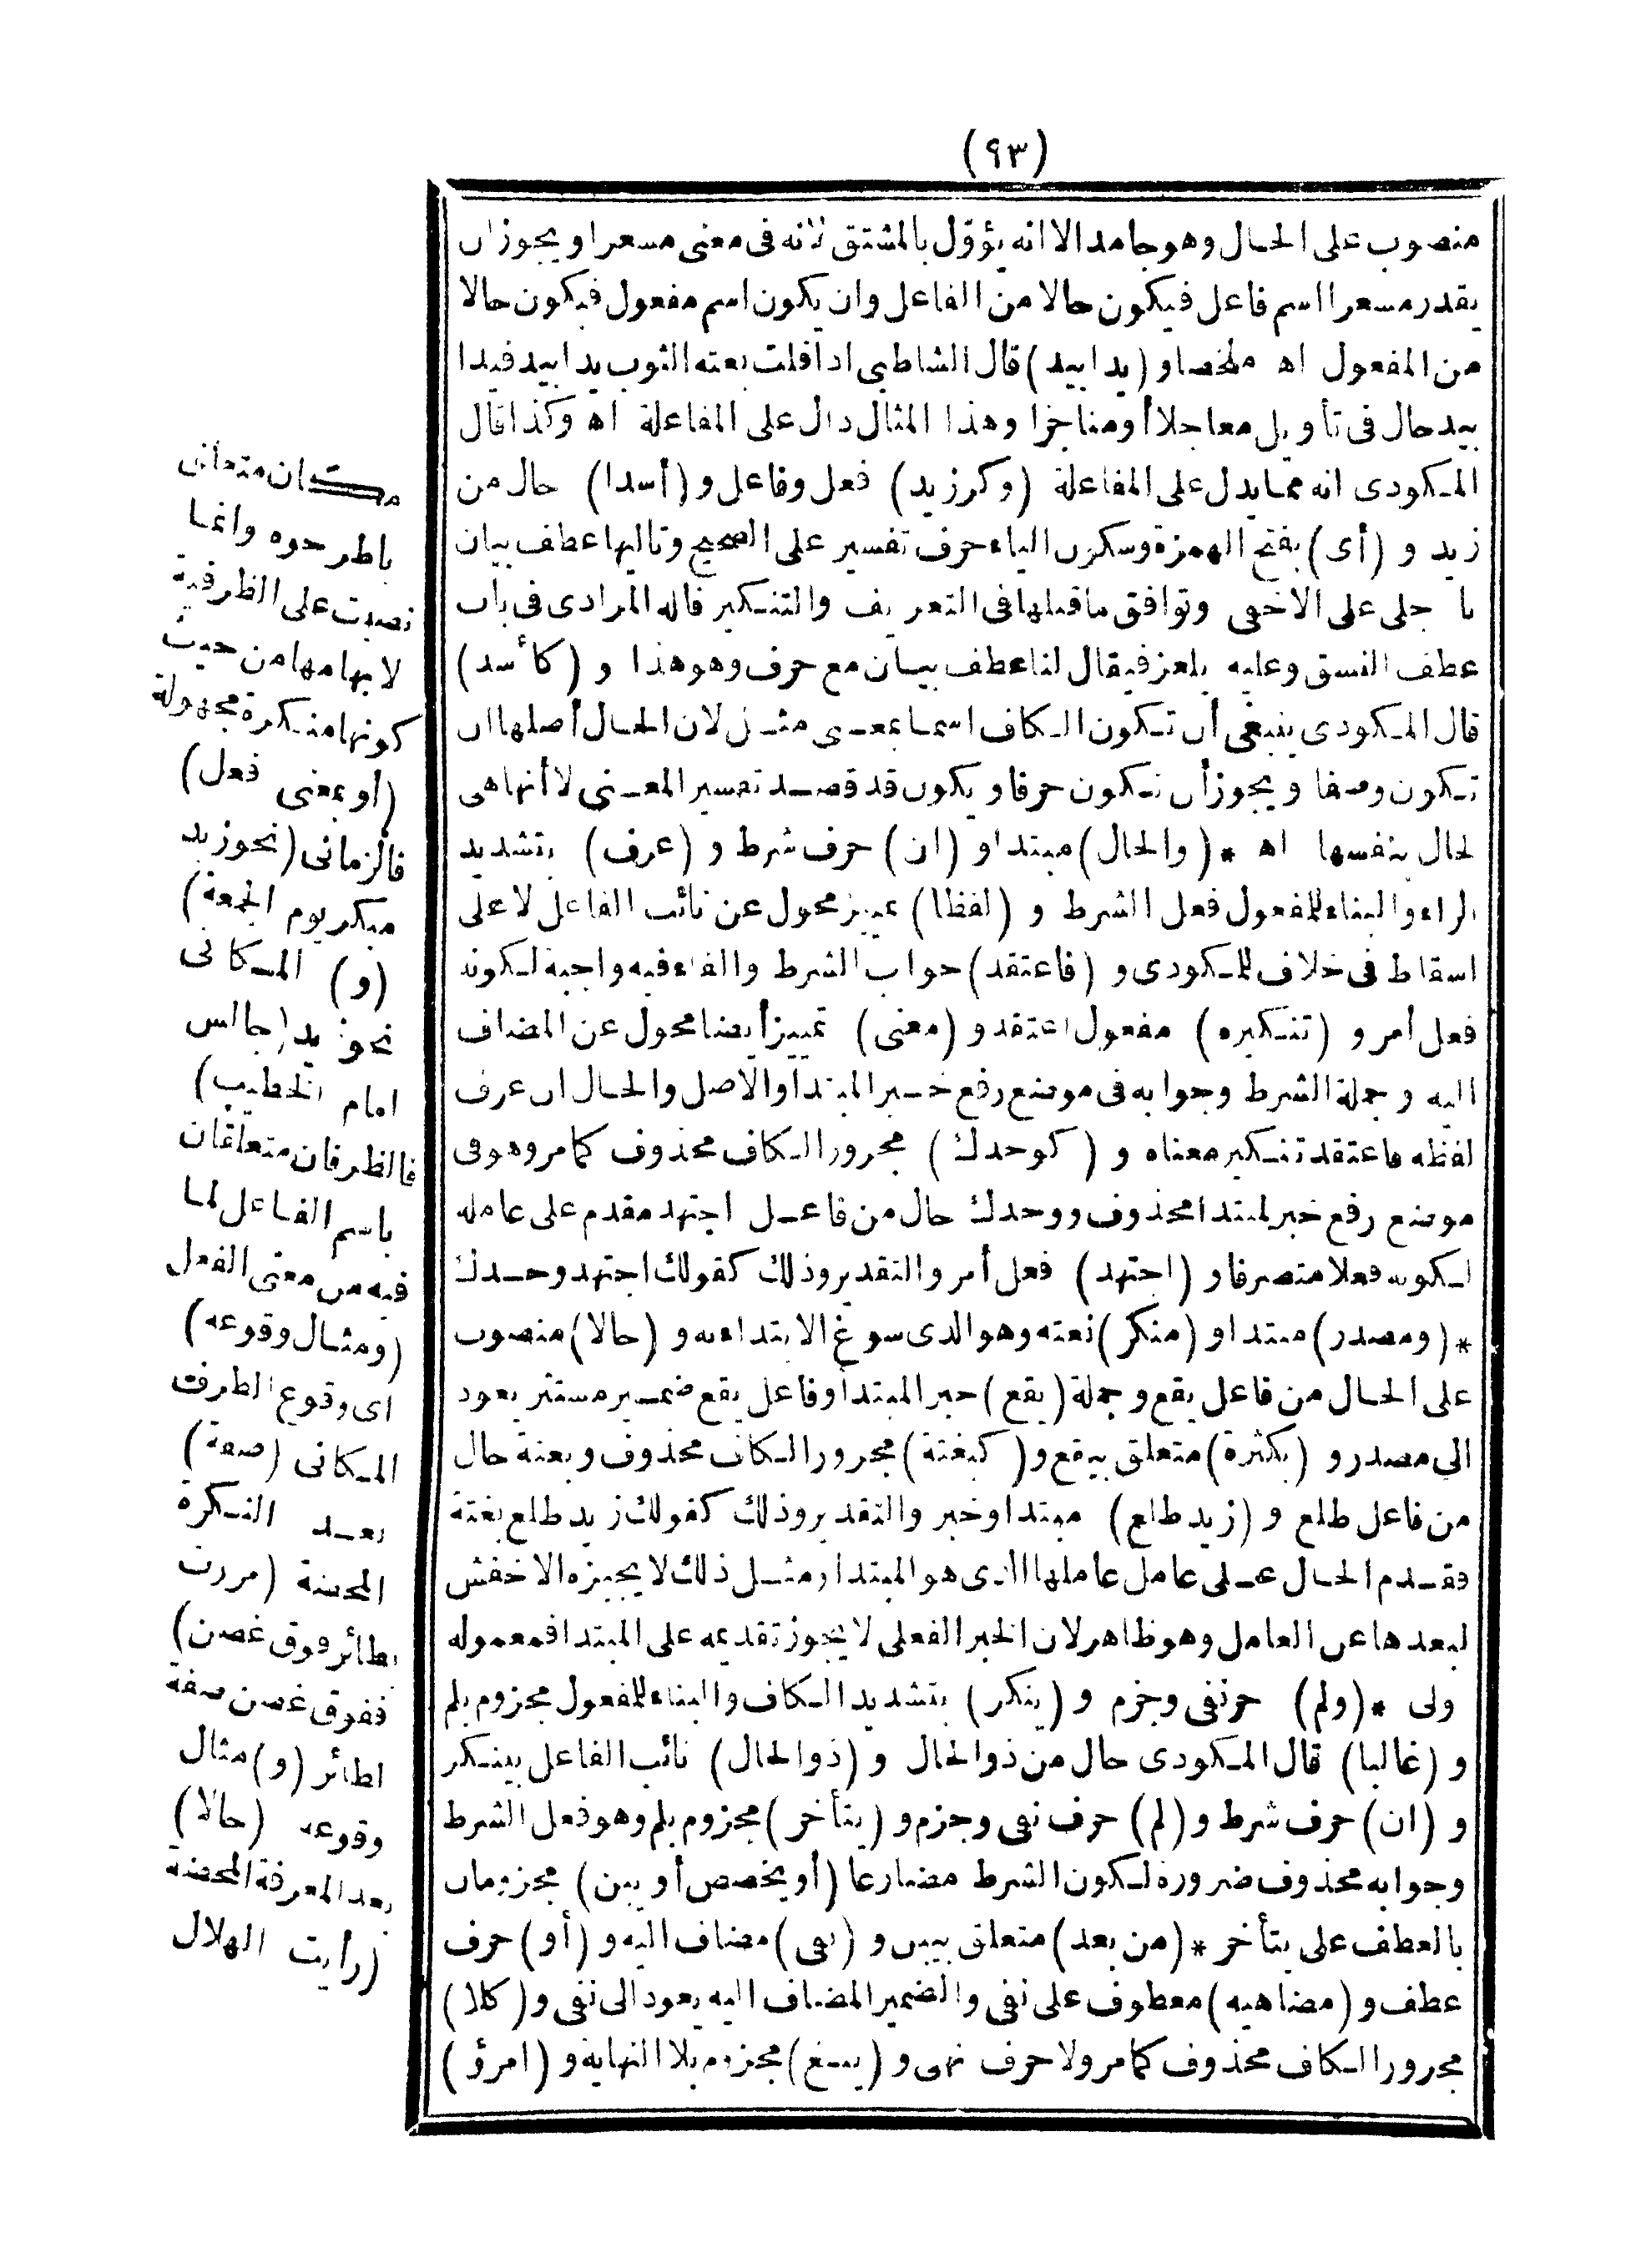 (٩٣)
منصوب على الحال وهو جامد الا انه يؤوّل بالمشتق لانه فى معنى مسعرا ويجوز ان
يقدر مسعرا اسم فاعل فيكون حالا من الفاعل وان يكون اسم مفعول فيكون حالا
من المفعول اه ملخصا و (يدا بيد) قال الشاطبى اذا قلت بعته الثوب يدا بيد فيدا
بيد حال فى تأويل معاجلا أو مناجزا وهذا المثال دال على المفاعلة اه وكذا قال
المكودى انه مما يدل على المفاعلة (وكر زيد) فعل وفاعل و (أسدا) حال من
زيد و (أى) بفتح الهمزة وسكون الياء حرف تفسير على الصحيح وتاليها عطف بيان
با جلى على الاخفى وتوافق ما قبلها فى التعريف والتنكير قاله المرادى فى باب
عطف النسق وعليه يلغز فيقال لنا عطف بيان مع حرف وهو هذا و (كأسد)
قال المكودى ينبغى أن تكون الكاف اسما بمعنى مثل لان الحال أصلها ان
تكون وصفا ويجوز أن تكون حرفا ويكون قد قصد تفسير المعنى لا أنها هى
لحال بنفسها اه * (والحال) مبتدا و (ان) حرف شرط و (عرف) بتشديد
الراء والبناء للمفعول فعل الشرط و (لفظا) تمييز محول عن نائب الفاعل لا على
اسقاط فى خلاف للمكودى و (فاعتقد) جواب الشرط والفاء فيه واجبة لكونه
فعل أمر و (تنكيره) مفعول اعتقد و (معنى) تمييز أيضا محول عن المضاف
اليه وجملة الشرط وجوابه فى موضع رفع خبر المبتدأ والاصل والحال ان عرف
لفظه فاعتقد تنكير معناه و (كوحدك) مجرور الكاف محذوف كما مر وهو فى
موضع رفع خبر لمبتدا محذوف ووحدك حال من فاعل اجتهد مقدم على عامله
لكونه فعلا متصرفا و (اجتهد) فعل أمر والتقدير وذلك كقولك اجتهد وحدك
* (ومصدر) مبتدا و (منكر) نعته وهو الذى سوغ الابتداء به و (حالا) منصوب
على الحال من فاعل يقع وجملة (يقع) خبر المبتدأ وفاعل يقع ضمير مستتر يعود
الى مصدر و (بكثرة) متعلق بيقع و (كبغتة) مجرور الكاف محذوف وبغتة حال
من فاعل طلع و (زيد طلع) مبتدا وخبر والتقدير وذلك كقولك زيد طلع بغتة
فقدم الحال على عامل عاملها الذى هو المبتدا ومثل ذلك لا يجيزه الاخفش
لبعدها عن العامل وهو ظاهر لان الخبر الفعلى لا يجوز تقديمه على المبتدا فمعموله
ولى * (ولم) حر نفى وجزم و (ينكر) بتشديد الكاف والبناء للمفعول مجزوم بلم
و (غالبا) قال المكودى حال من ذو الحال و (ذو الحال) نائب الفاعل بينكر
و (ان) حرف شرط و (لم) حرف نفى وجزم و (يتأخر) مجزوم بلم وهو فعل الشرط
وجوابه محذوف ضرورة لكون الشرط مضارعا (أو يخصص أو يبن) مجزومان
بالعطف على يتأخر * (من بعد) متعلق بيبن و (نفى) مضاف اليه و (أو) حرف
عطف و (مضاهيه) معطوف على نفى والضمير المضاف اليه يعود الى نفى و (كلا)
مجرور الكاف محذوف كما مر ولا حرف نهى و (يبغ) مجزوم بلا الناهية و (امرؤ)
ان متعلقى
باطرحوه وانما
نصبت على الظرفية
لابهامها من حيث
كونها منكرة مجهولة
(أو بمعنى فعل)
فالزمانى (نحو زيد
مبكر يوم الجمعة)
(و) المكانى
نحو زيد (جالس
امام الخطيب)
فالظرفان متعلقان
باسم الفاعل لما
فيه من معنى الفعل
(ومثال وقوعه)
اى وقوع الظرف
المكانى (صفة)
بعد النكرة
المحضة (مررت
بطائر فوق غصن)
ففوق غصن صفة
لطائر (و) مثال
وقوعه (حالا)
بعد المعرفة المحضة
(رأيت الهلال